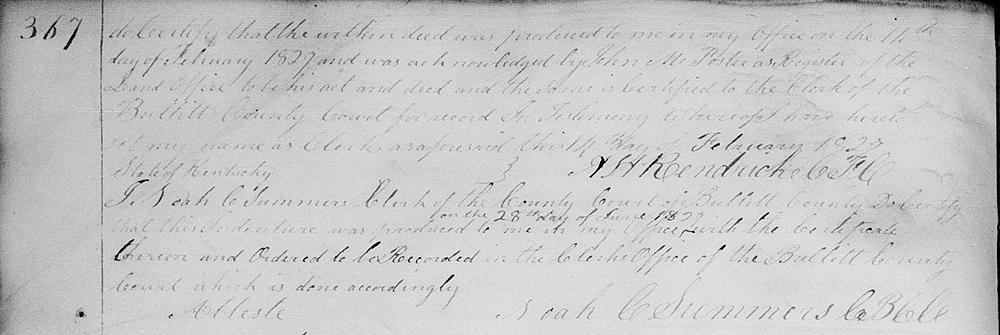 367
do Certify that the within deed was produced to me in my Office on the 14th
day of February 1827 and was acknowledged by John M. Foster as Register of the
Land Office to be his act and deed and the same is Certified to the Clerk of the
Bullitt County Court for record In Testimony whereof I have hereto
set my name as Clerk as aforesaid this 14th day of February 1827
State of Kentucky } A H Rendricke C F C
I Noah C Summers Clerk of the County Court of Bullitt County Do Certify
on the 28th day of June 1827
that this Indenture was produced to me in my Office, with the Certificate
thereon and Ordered to be Recorded in the Clerks Office of the Bullitt County
Court which is done accordingly
Atteste Noah C Summers Ca B C C